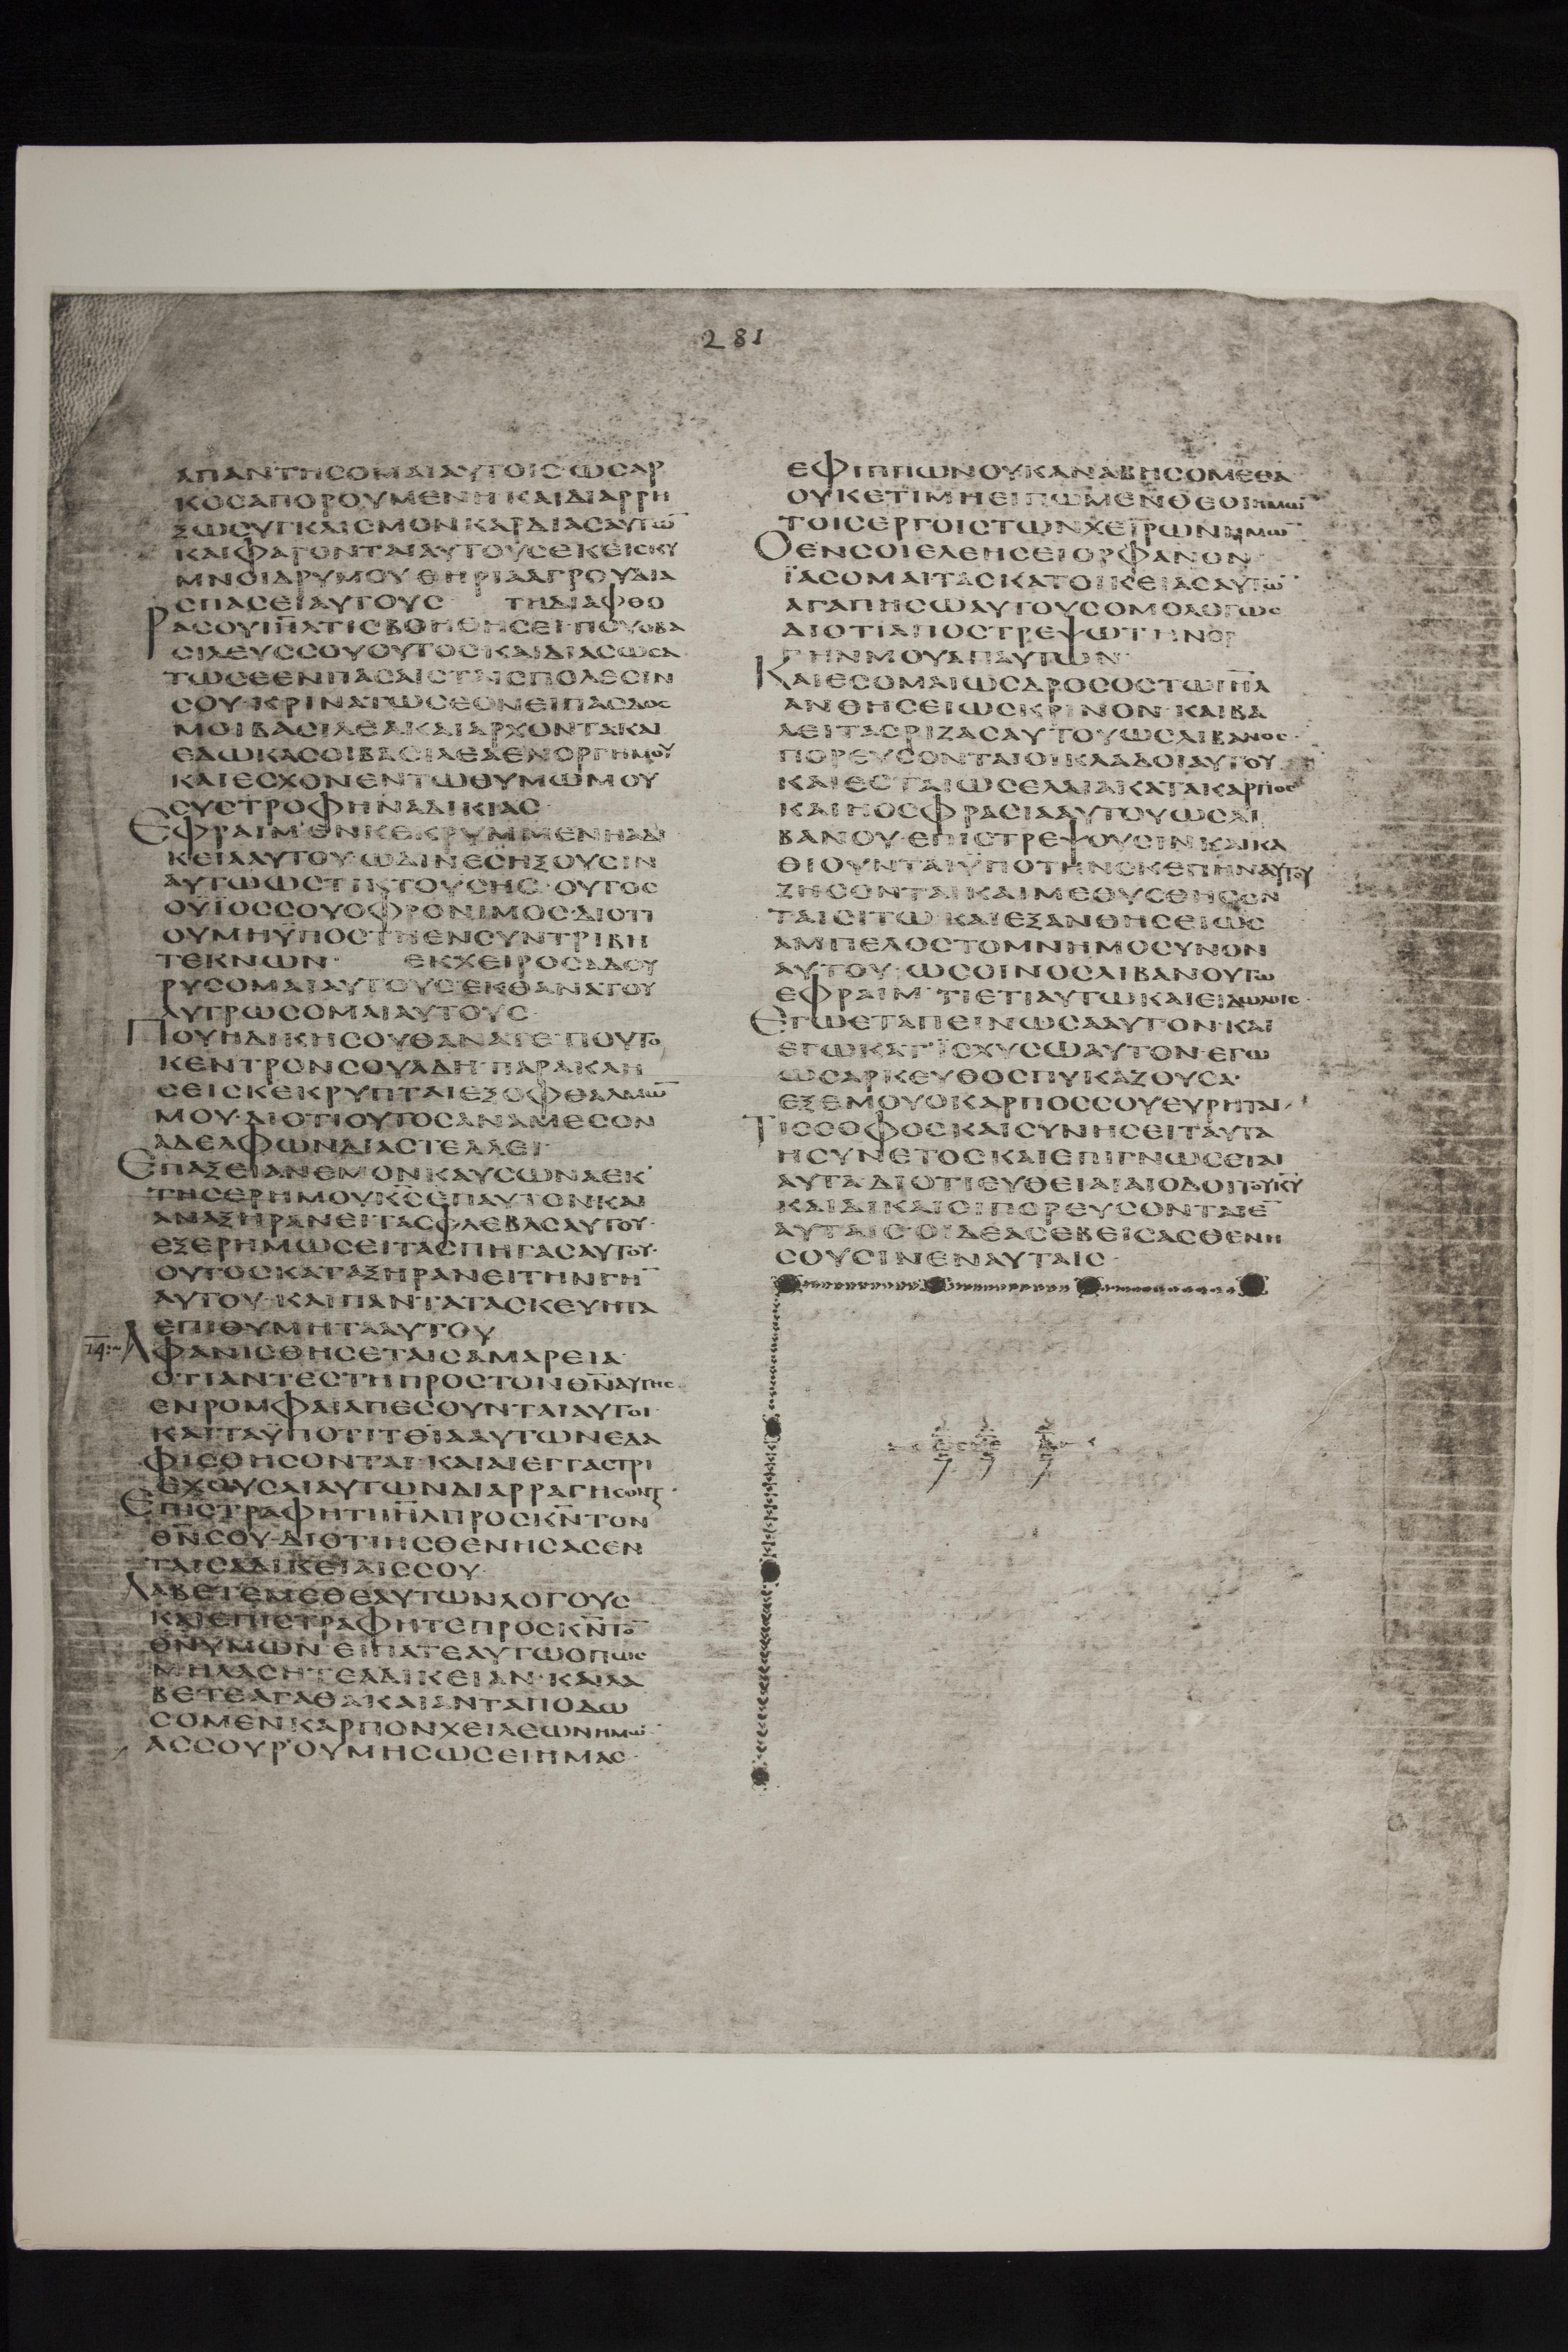 281
ΑΠΑΝΤΗСΟΜΑΙΑΥΤΟΙС·ΩСΑΡ
ΚΟСΑΠΟΡΟΥΜΕΝΗ·ΚΑΙΔΙΑΡΡΗ
ΞΩСΥΓΚΛΙСΜΟΝΚΑΡΔΙΑСΑΥΤΩ̅
ΚΑΙΦΑΓΟΝΤΑΙΑΥΤΟΥСΕΚΕΙСΚΥ
ΜΝΟΙΔΡΥΜΟΥΘΗΡΙΑΑΓΡΟΥΔΙΑ
СΠΑСΕΙΑΥΤΟΥС ΤΗΔΙΑΦΘΟ
ΡΑСΟΥΙΗ̅ΛΤΙСΒΟΗΘΗСΕΙ·ΠΟΥΟΒΑ
СΙΛΕΥССΟΥΟΥΤΟС·ΚΑΙΔΙΑСΩСΑ
ΤΩСΕΕΝΠΑСΑΙСΤΑΙСΠΟΛΕСΙΝ
СΟΥ·ΚΡΙΝΑΤΩСΕΟΝΕΙΠΑСΔΟС
ΜΟΙΒΑСΙΛΕΑΚΑΙΑΡΧΟΝΤΑΚΑΙ
ΕΔΩΚΑСΟΙΒΑСΙΛΕΑΕΝΟΡΓΗΜΟΥ
ΚΑΙΕСΧΟΝΕΝΤΩΘΥΜΩΜΟΥ
СΥСΤΡΟΦΗΝΑΔΙΚΙΑС·
ΕΦΡΑΙΜ·ΕΝΚΕΚΡΥΜΜΕΝΗΑΔΙ
ΚΕΙΑΑΥΤΟΥ·ΩΔΙΝΕСΗΞΟΥСΙΝ
ΑΥΤΩΩСΤΙΚΤΟΥСΗС·ΟΥΤΟС
ΟΥΪΟССΟΥΟΦΡΟΝΙΜΟС·ΔΙΟΤΙ
ΟΥΜΗΫΠΟСΤΗΕΝСΥΝΤΡΙΒΗ
ΤΕΚΝΩΝ· ΕΚΧΕΙΡΟСΑΔΟΥ
ΡΥСΟΜΑΙΑΥΤΟΥС·ΕΚΘΑΝΑΤΟΥ
ΛΥΤΡΩСΟΜΑΙΑΥΤΟΥС·
ΠΟΥΗΔΙΚΗСΟΥΘΑΝΑΤΕ·ΠΟΥΤΟ
ΚΕΝΤΡΟΝСΟΥΑΔΗ·ΠΑΡΑΚΛΗ
СΕΙСΚΕΚΡΥΠΤΑΙΕΞΟΦΘΑΛΜΩ̅
ΜΟΥ·ΔΙΟΤΙΟΥΤΟСΑΝΑΜΕСΟΝ
ΑΔΕΛΦΩΝΔΙΑСΤΕΛΛΕΙ·
ΕΠΑΞΕΙΑΝΕΜΟΝΚΑΥСΩΝΑΕΚ
ΤΗСΕΡΗΜΟΥΚ̅С̅ΕΠΑΥΤΟΝΚΑΙ
ΑΝΑΞΗΡΑΝΕΙΤΑСΦΛΕΒΑСΑΥΤΟΥ·
ΕΞΕΡΗΜΩСΕΙΤΑСΠΗΓΑСΑΥΤΟΥ·
ΟΥΤΟСΚΑΤΑΞΗΡΑΝΕΙΤΗΝΓΗ̅
ΑΥΤΟΥ·ΚΑΙΠΑΝΤΑΤΑСΚΕΥΗΤΑ
ΕΠΙΘΥΜΗΤΑΑΥΤΟΥ
14:~ ΑΦΑΝΙСΘΗСΕΤΑΙСΑΜΑΡΕΙΑ·
ΟΤΙΑΝΤΕСΤΗΠΡΟСΤΟΝΘ̅Ν̅ΑΥΤΗС·
ΕΝΡΟΜΦΑΙΑΠΕСΟΥΝΤΑΙΑΥΤΟΙ·
ΚΑΙΤΑΫΠΟΤΙΤΘΙΑΑΥΤΩΝΕΔΑ
ΦΙСΘΗСΟΝΤΑΙ·ΚΑΙΑΙΕΓΓΑСΤΡΙ
ΕΧΟΥСΑΙΑΥΤΩΝΔΙΑΡΡΑΓΗСΟΝΤ·
ΕΠΙСΤΡΑΦΗΤΙΙΗ̅ΛΠΡΟСΚ̅Ν̅ΤΟΝ
Θ̅Ν̅СΟΥ·ΔΙΟΤΙΗСΘΕΝΗСΑСΕΝ
ΤΑΙСΑΔΙΚΕΙΑΙССΟΥ·
ΛΑΒΕΤΕΜΕΘΕΑΥΤΩΝΛΟΓΟΥС
ΚΑΙΕΠΙСΤΡΑΦΗΤΕΠΡΟСΚ̅Ν̅ΤΟ̅
Θ̅Ν̅ΥΜΩΝ·ΕΙΠΑΤΕΑΥΤΩΟΠΩС
ΜΗΛΑΒΗΤΕΑΔΙΚΕΙΑΝ·ΚΑΙΛΑ
ΒΕΤΕΑΓΑΘΑΚΑΙΑΝΤΑΠΟΔΩ
СΟΜΕΝΚΑΡΠΟΝΧΕΙΛΕΩΝΗΜΩ̅·
ΑССΟΥΡΟΥΜΗСΩСΕΙΗΜΑС·
ΕΦΙΠΠΩΝΟΥΚΑΝΑΒΗСΟΜΕΘΑ·
ΟΥΚΕΤΙΜΗΕΙΠΩΜΕΝΘΕΟΙΗΜΩ̅
ΤΟΙСΕΡΓΟΙСΤΩΝΧΕΙΡΩΝΗΜΩ̅
ΟΕΝСΟΙΕΛΕΗСΕΙΟΡΦΑΝΟΝ·
ΪΑСΟΜΑΙΤΑСΚΑΤΟΙΚΕΙΑСΑΥΤΩ̅·
ΑΓΑΠΗСΩΑΥΤΟΥСΟΜΟΛΟΓΩС
ΔΙΟΤΙΑΠΟСΤΡΕΨΩΤΗΝΟΡ
ΓΗΝΜΟΥΑΠΑΥΤΩΝ·
ΚΑΙΕСΟΜΑΙΩСΔΡΟСΟСΤΩΙΗ̅Λ
ΑΝΘΗСΕΙΩСΚΡΙΝΟΝ·ΚΑΙΒΑ
ΛΕΙΤΑСΡΙΖΑСΑΥΤΟΥΩСΛΙΒΑΝΟС·
ΠΟΡΕΥСΟΝΤΑΙΟΙΚΛΑΔΟΙΑΥΤΟΥ·
ΚΑΙΕСΤΑΙΩСΕΛΑΙΑΚΑΤΑΚΑΡΠΟС
ΚΑΙΗΟСΦΡΑСΙΑΑΥΤΟΥΩСΛΙ
ΒΑΝΟΥ·ΕΠΙСΤΡΕΨΟΥСΙΝΚΑΙΚΑ
ΘΙΟΥΝΤΑΙΫΠΟΤΗΝСΚΕΠΗΝΑΥΤΟΥ
ΖΗСΟΝΤΑΙΚΑΙΜΕΘΥСΘΗСΟΝ
ΤΑΙСΙΤΩ·ΚΑΙΕΞΑΝΘΗСΕΙΩС
ΑΜΠΕΛΟСΤΟΜΝΗΜΟСΥΝΟΝ
ΑΥΤΟΥ·ΩСΟΙΝΟСΛΙΒΑΝΟΥΤΩ
ΕΦΡΑΙΜ·ΤΙΕΤΙΑΥΤΩΚΑΙΕΙΔΩΛΟΙС·
ΕΓΩΕΤΑΠΕΙΝΩСΑΑΥΤΟΝ·ΚΑΙ
ΕΓΩΚΑΤΙСΧΥСΩΑΥΤΟΝ·ΕΓΩ
ΩСΑΡΚΕΥΘΟСΠΥΚΑΖΟΥСΑ·
ΕΞΕΜΟΥΟΚΑΡΠΟССΟΥΕΥΡΗΤΑΙ·
ΤΙССΟΦΟСΚΑΙСΥΝΗСΕΙΤΑΥΤΑ
ΗСΥΝΕΤΟСΚΑΙΕΠΙΓΝΩСΕΤΑΙ
ΑΥΤΑ·ΔΙΟΤΙΕΥΘΕΙΑΙΑΙΟΔΟΙΤΟΥΚ̅Υ̅
ΚΑΙΔΙΚΑΙΟΙΠΟΡΕΥСΟΝΤΑΙΕ̅
ΑΥΤΑΙС·ΟΙΔΕΑСΕΒΕΙСΑСΘΕΝΗ
СΟΥСΙΝΕΝΑΥΤΑΙС·